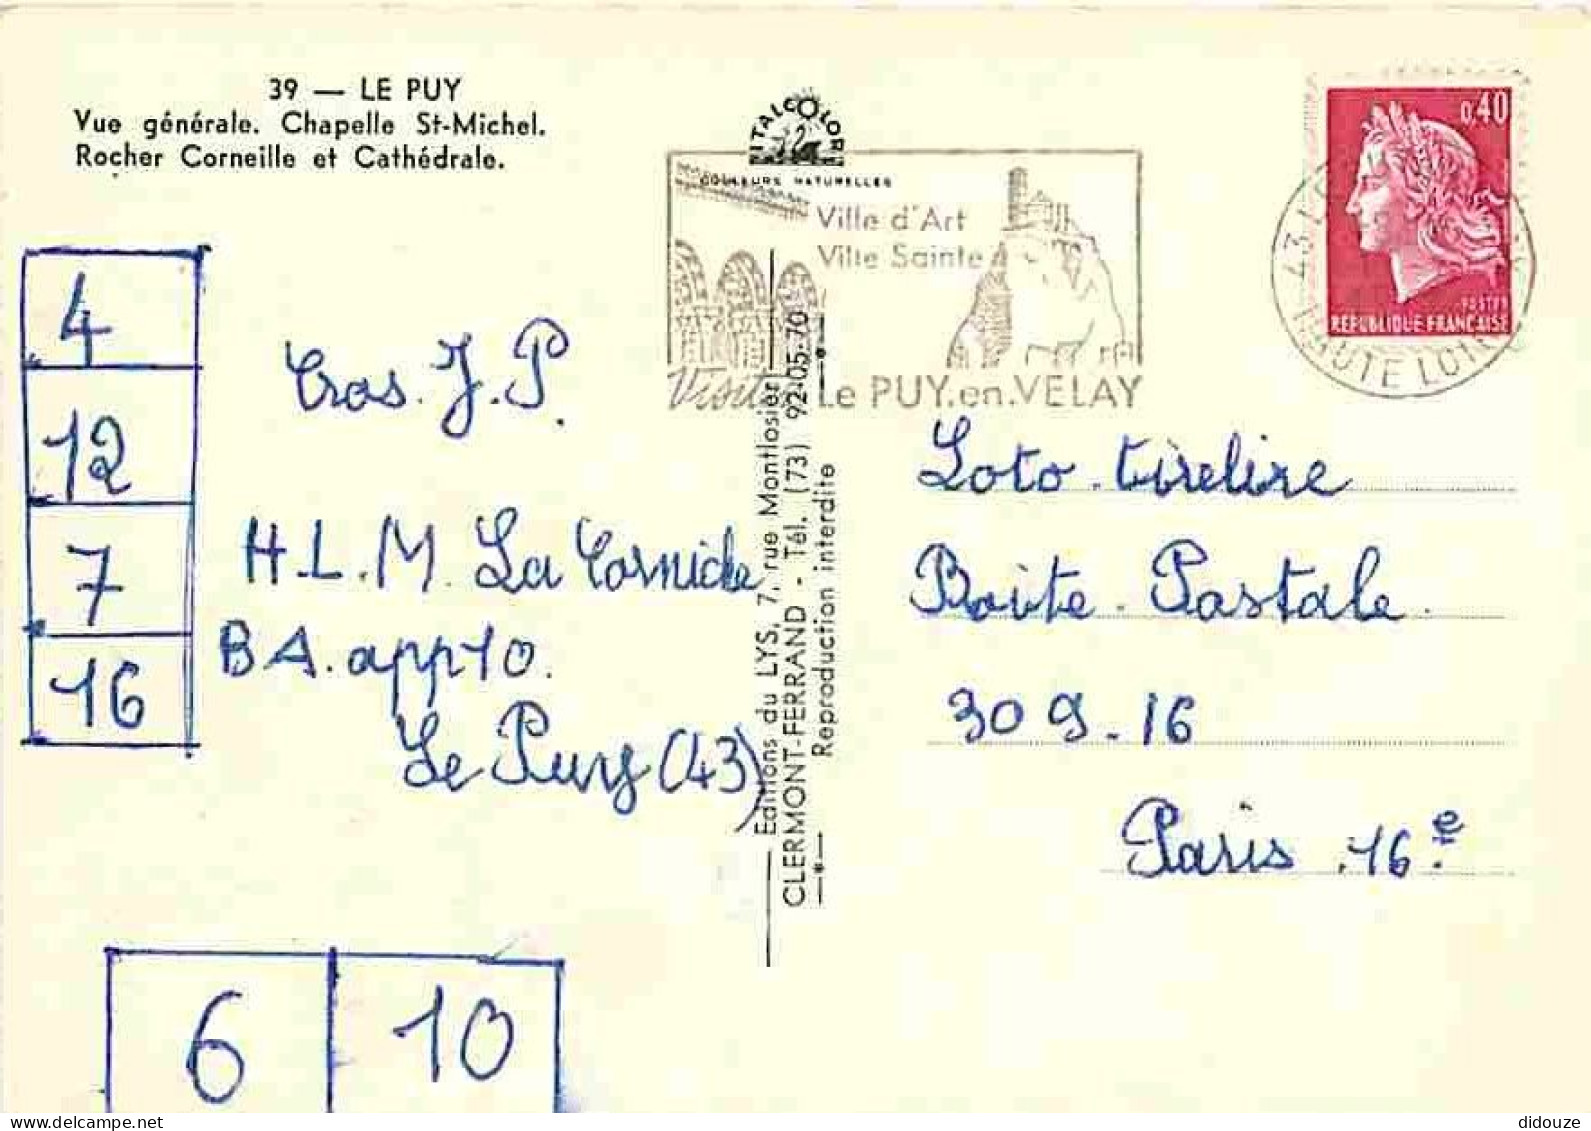 39 — LE PUY
Vue générale. Chapelle St-Michel.
Rocher Corneille et Cathédrale.
ITALCOLOR
COULEURS NATURELLES
Ville d'Art
Ville Sainte
Le PUY.en.VELAY
0,40
POSTES
REPUBLIQUE FRANCAISE
43
HAUTE LOIRE
4
12
7
16
Cros. J. P.
H.L.M. La Corniche
B A. app 10.
Le Puy (43)
Editions du LYS, 7, rue Montlosier
CLERMONT-FERRAND - Tél. (73) 92-05-70
Reproduction interdite
Loto. tirelire
Boite. Postale.
309.16
Paris .16.e
6
10
www.delcampe.net
didouze